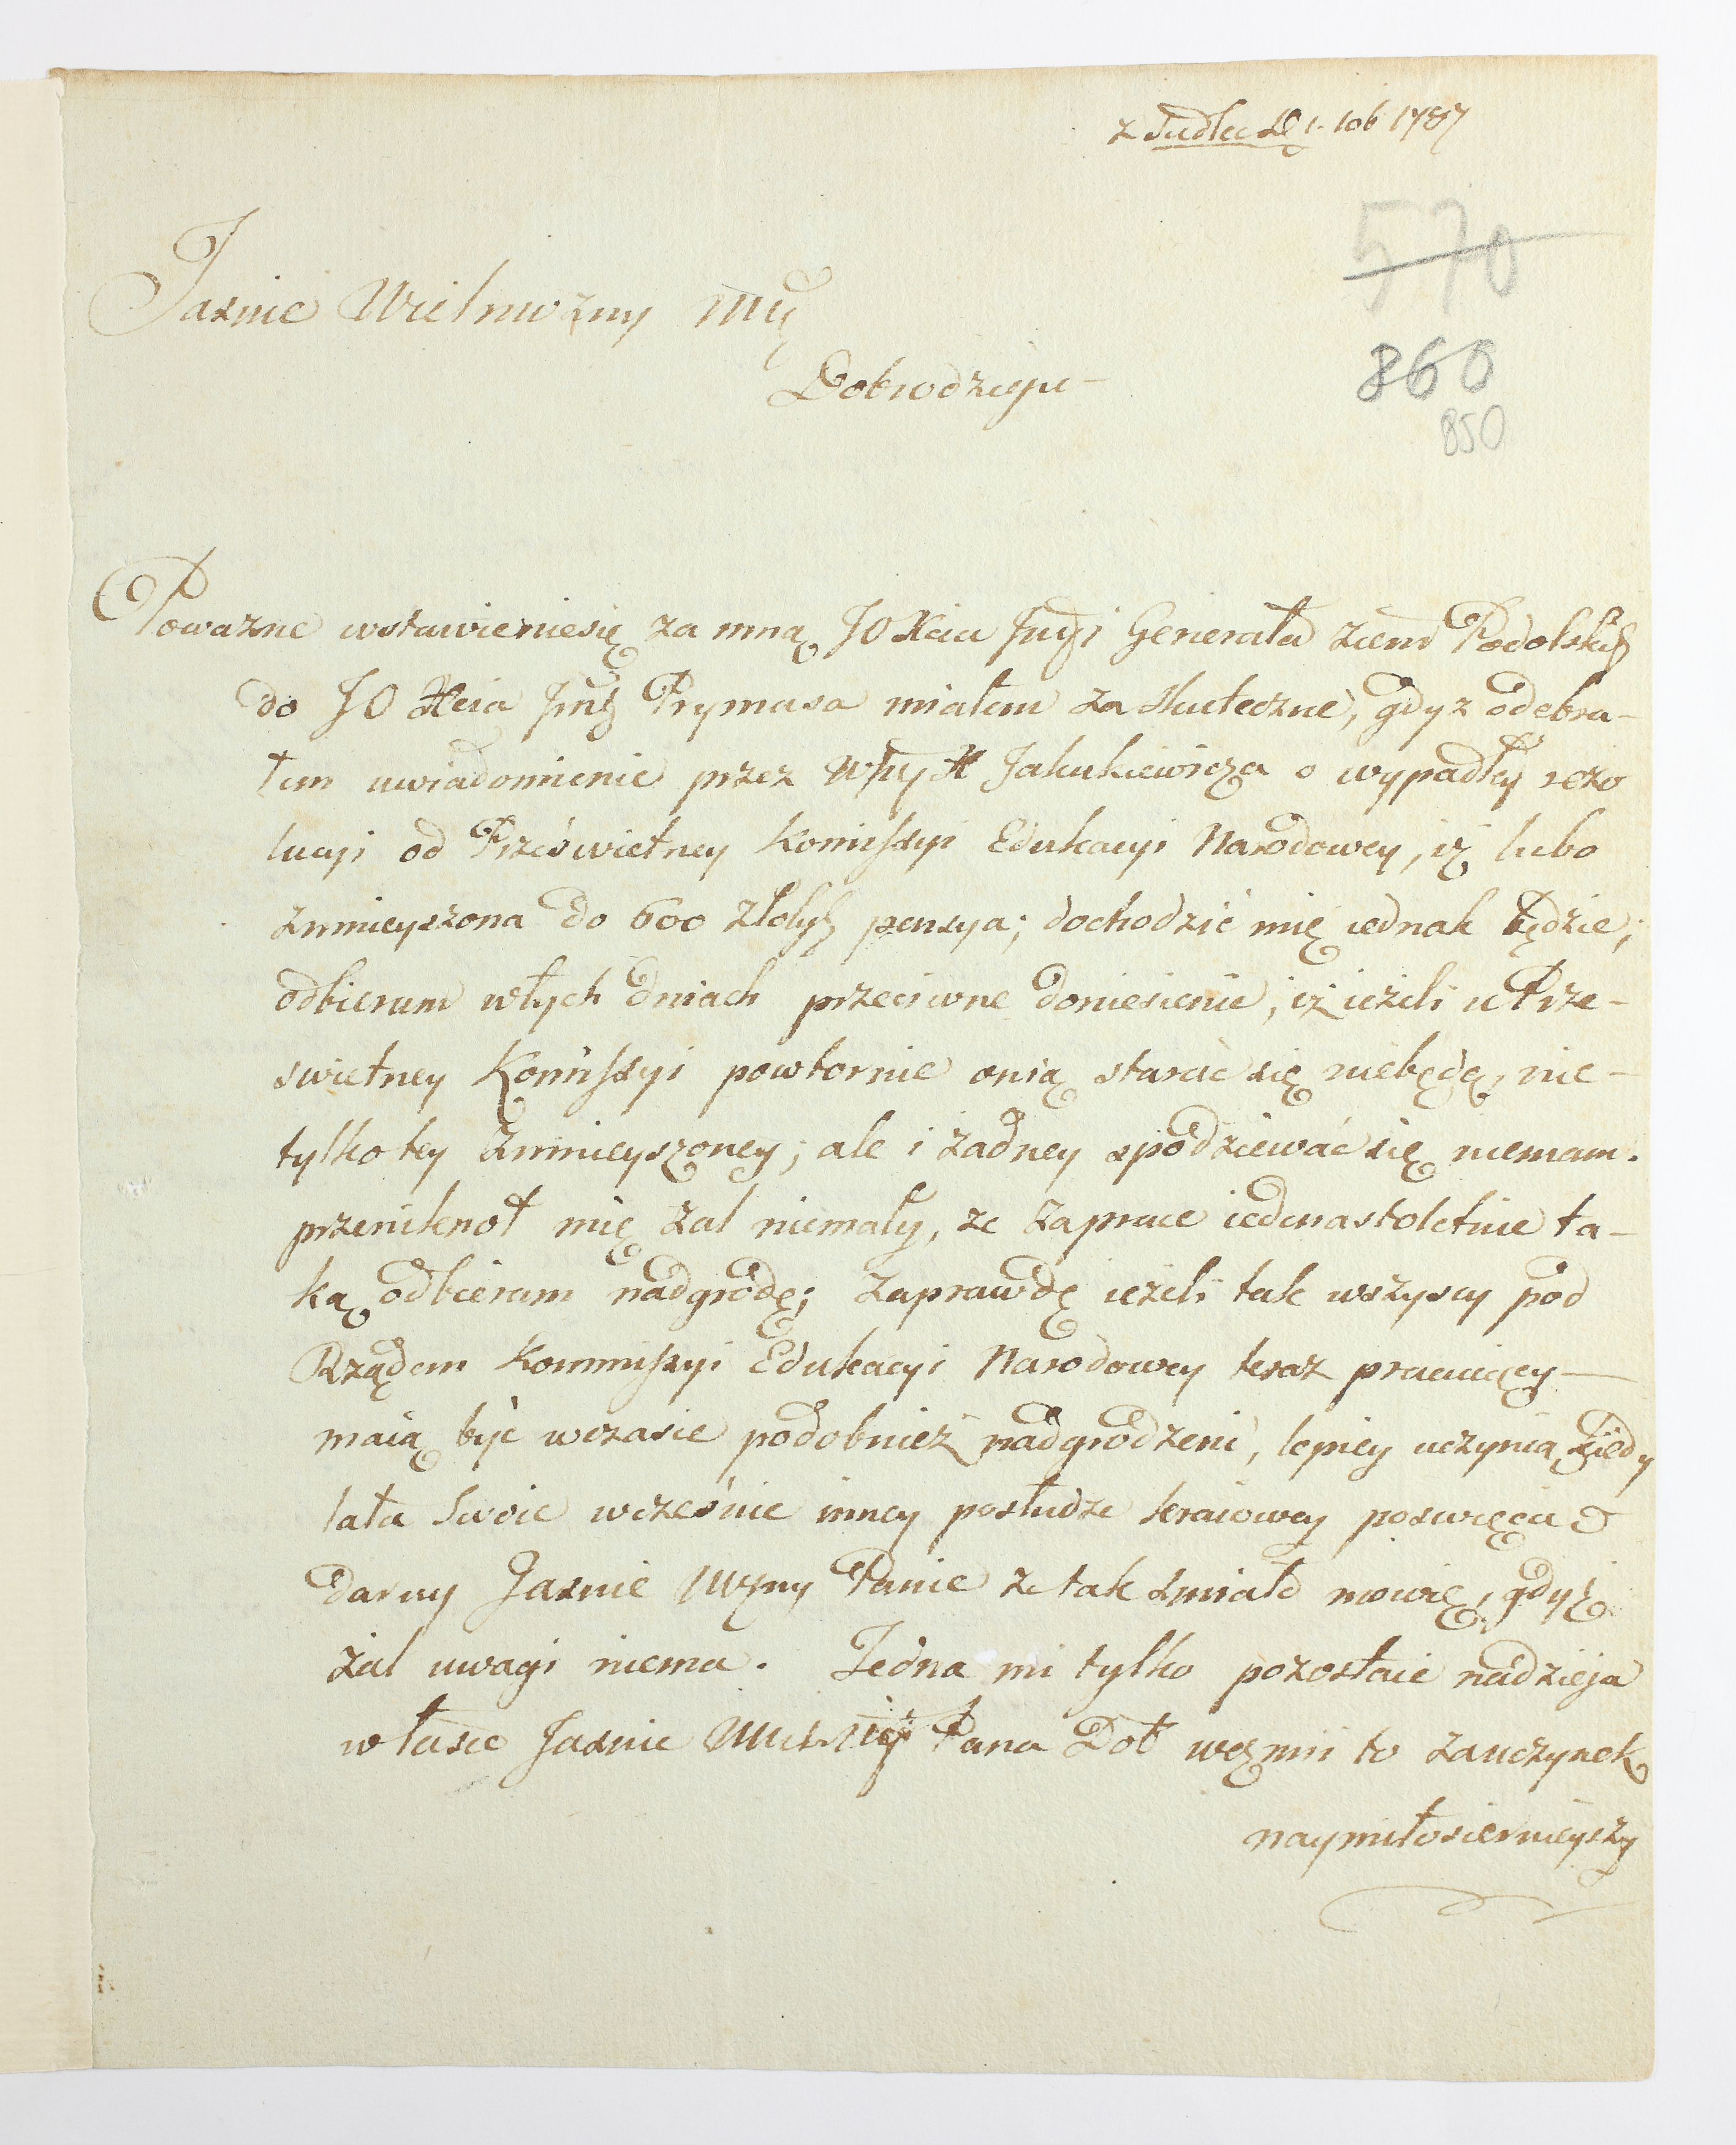 z Siedlec D 1. 10b 1787
570
Jasnie Wielmożny Mcy
Dobrodzieju
860
850
Poważne wstawieniesię za mną JO Xcia Jmci Generała Ziem Podolskich
do JO Xcia Jmci Prymasa miałem za skuteczne, gdyz odebra-
łem uwiadomienie przez X Jakukiewicza o wypadłey rezo
lucyi od Prześwietney Komissyi Edukacyi Narodowey, iż lubo
zmnieyszona do 600 złotych pensya; dochodzić mię iednak będzie;
odbieram wtych dniach przeciwne doniesienie, iż ieżeli u Prze-
swietney Komissyi powtornie onią starać się niebędę, nie-
tylko tey zmnieyszoney; ale i żadney spodziewać się niemam.
przeniknoł mię żal niemały, ze za prace iedenastoletnie ta-
ką odbieram nadgrodę; zaprawdę ieżeli tak wszyscy pod
Rządem Kommissyi Edukacyi Narodowey teraz pracuiący
maią być wczasie podobnież nadgrodzeni, lepiey uczynią kiedy
lata swoie wcześnie inney posłudze kraiowey poswięcą
daruy Jasnie Wżny Panie ze tak smiało mowię, gdyż
żal uwagi niema. Jedna mi tylko pozostaie nadzieja
w łasce Jasnie Pana Dob wezmij to za uczynek
naymiłosiernieyszy